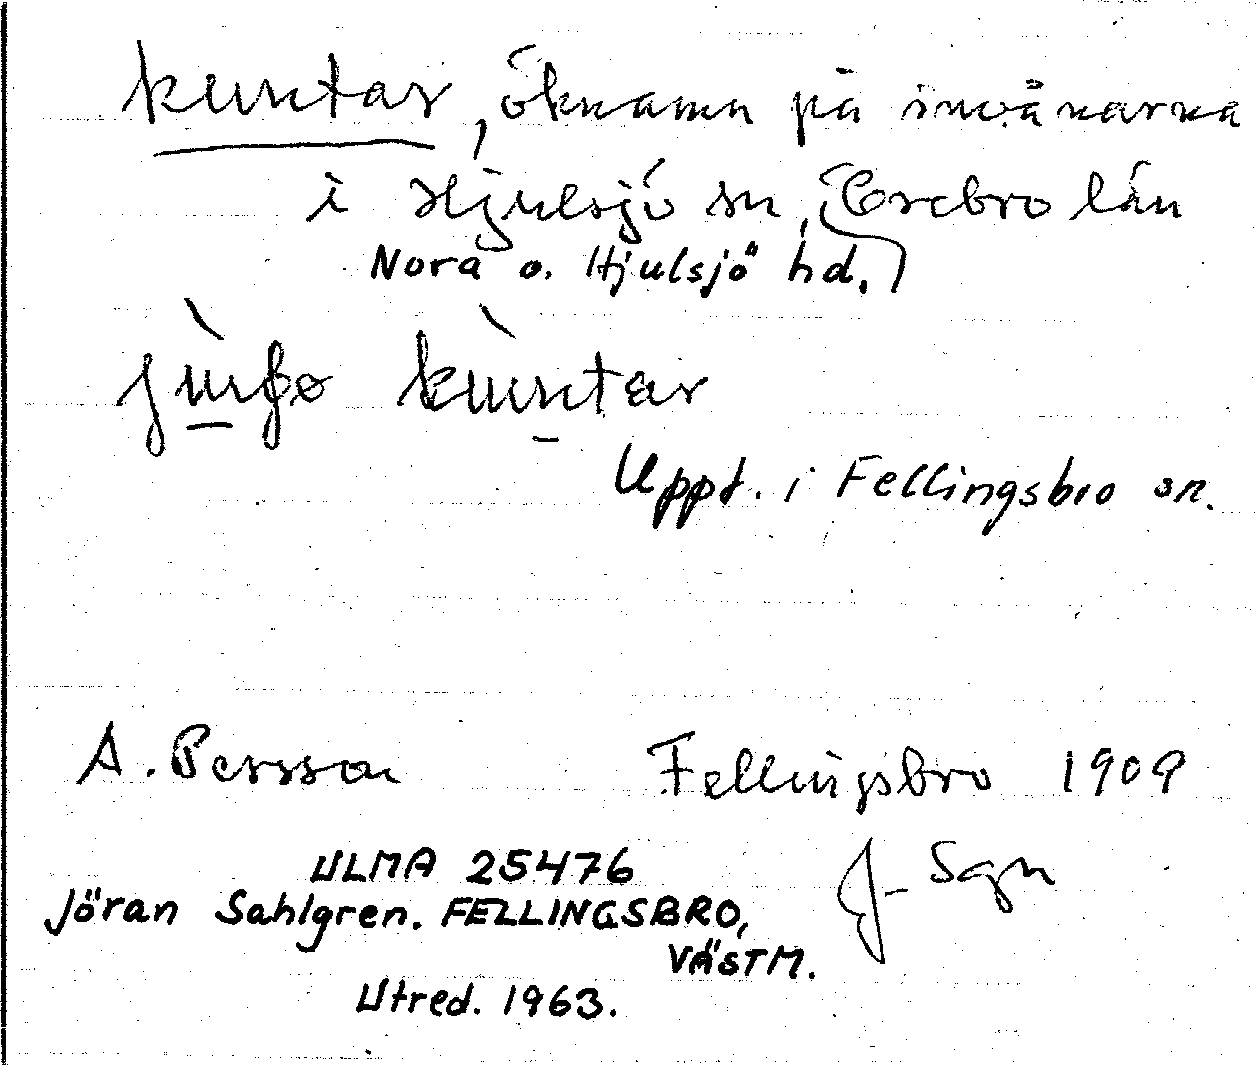 kuntar, öknamn på invånarna
i Hjulsjö sn, Örebro län
Nora o. Hjulsjö hd.
kuntar
Uppt. i Fellingsbro sn.
A. Persson Fellingsbro 1909
J. Sgn
ULMA 25476
Jöran Sahlgren. FELLINGSBRO,
VÄSTM.
Utred. 1963.